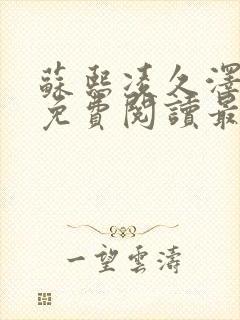 蘇熙凌久澤
免費閱讀最
一望雲濤